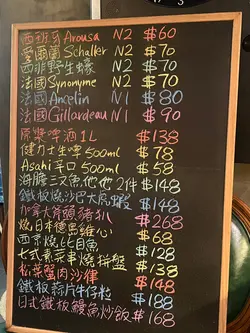 西班牙Arousa N2 $60
愛爾蘭Schaller N2 $70
西非野生蠔 N2 $70
法國Synonyme N2 $70
法國Ancelin N1 $80
法國Gillardeau N1 $90
原漿啤酒1L $138
健力士生啤500ml $78
Asahi辛口500ml $58
海膽三文魚他他2件 $148
鐵板燒沙巴大尾蝦 $148
加拿大斧頭豬扒 $268
燒日本德島雞心 $68
西京燒比目魚 $128
七式素菜串燒拼盤 $138
松葉蟹肉沙律 $148
鐵板蒜片牛仔粒 $188
日式鐵板鰻魚炒飯 $168